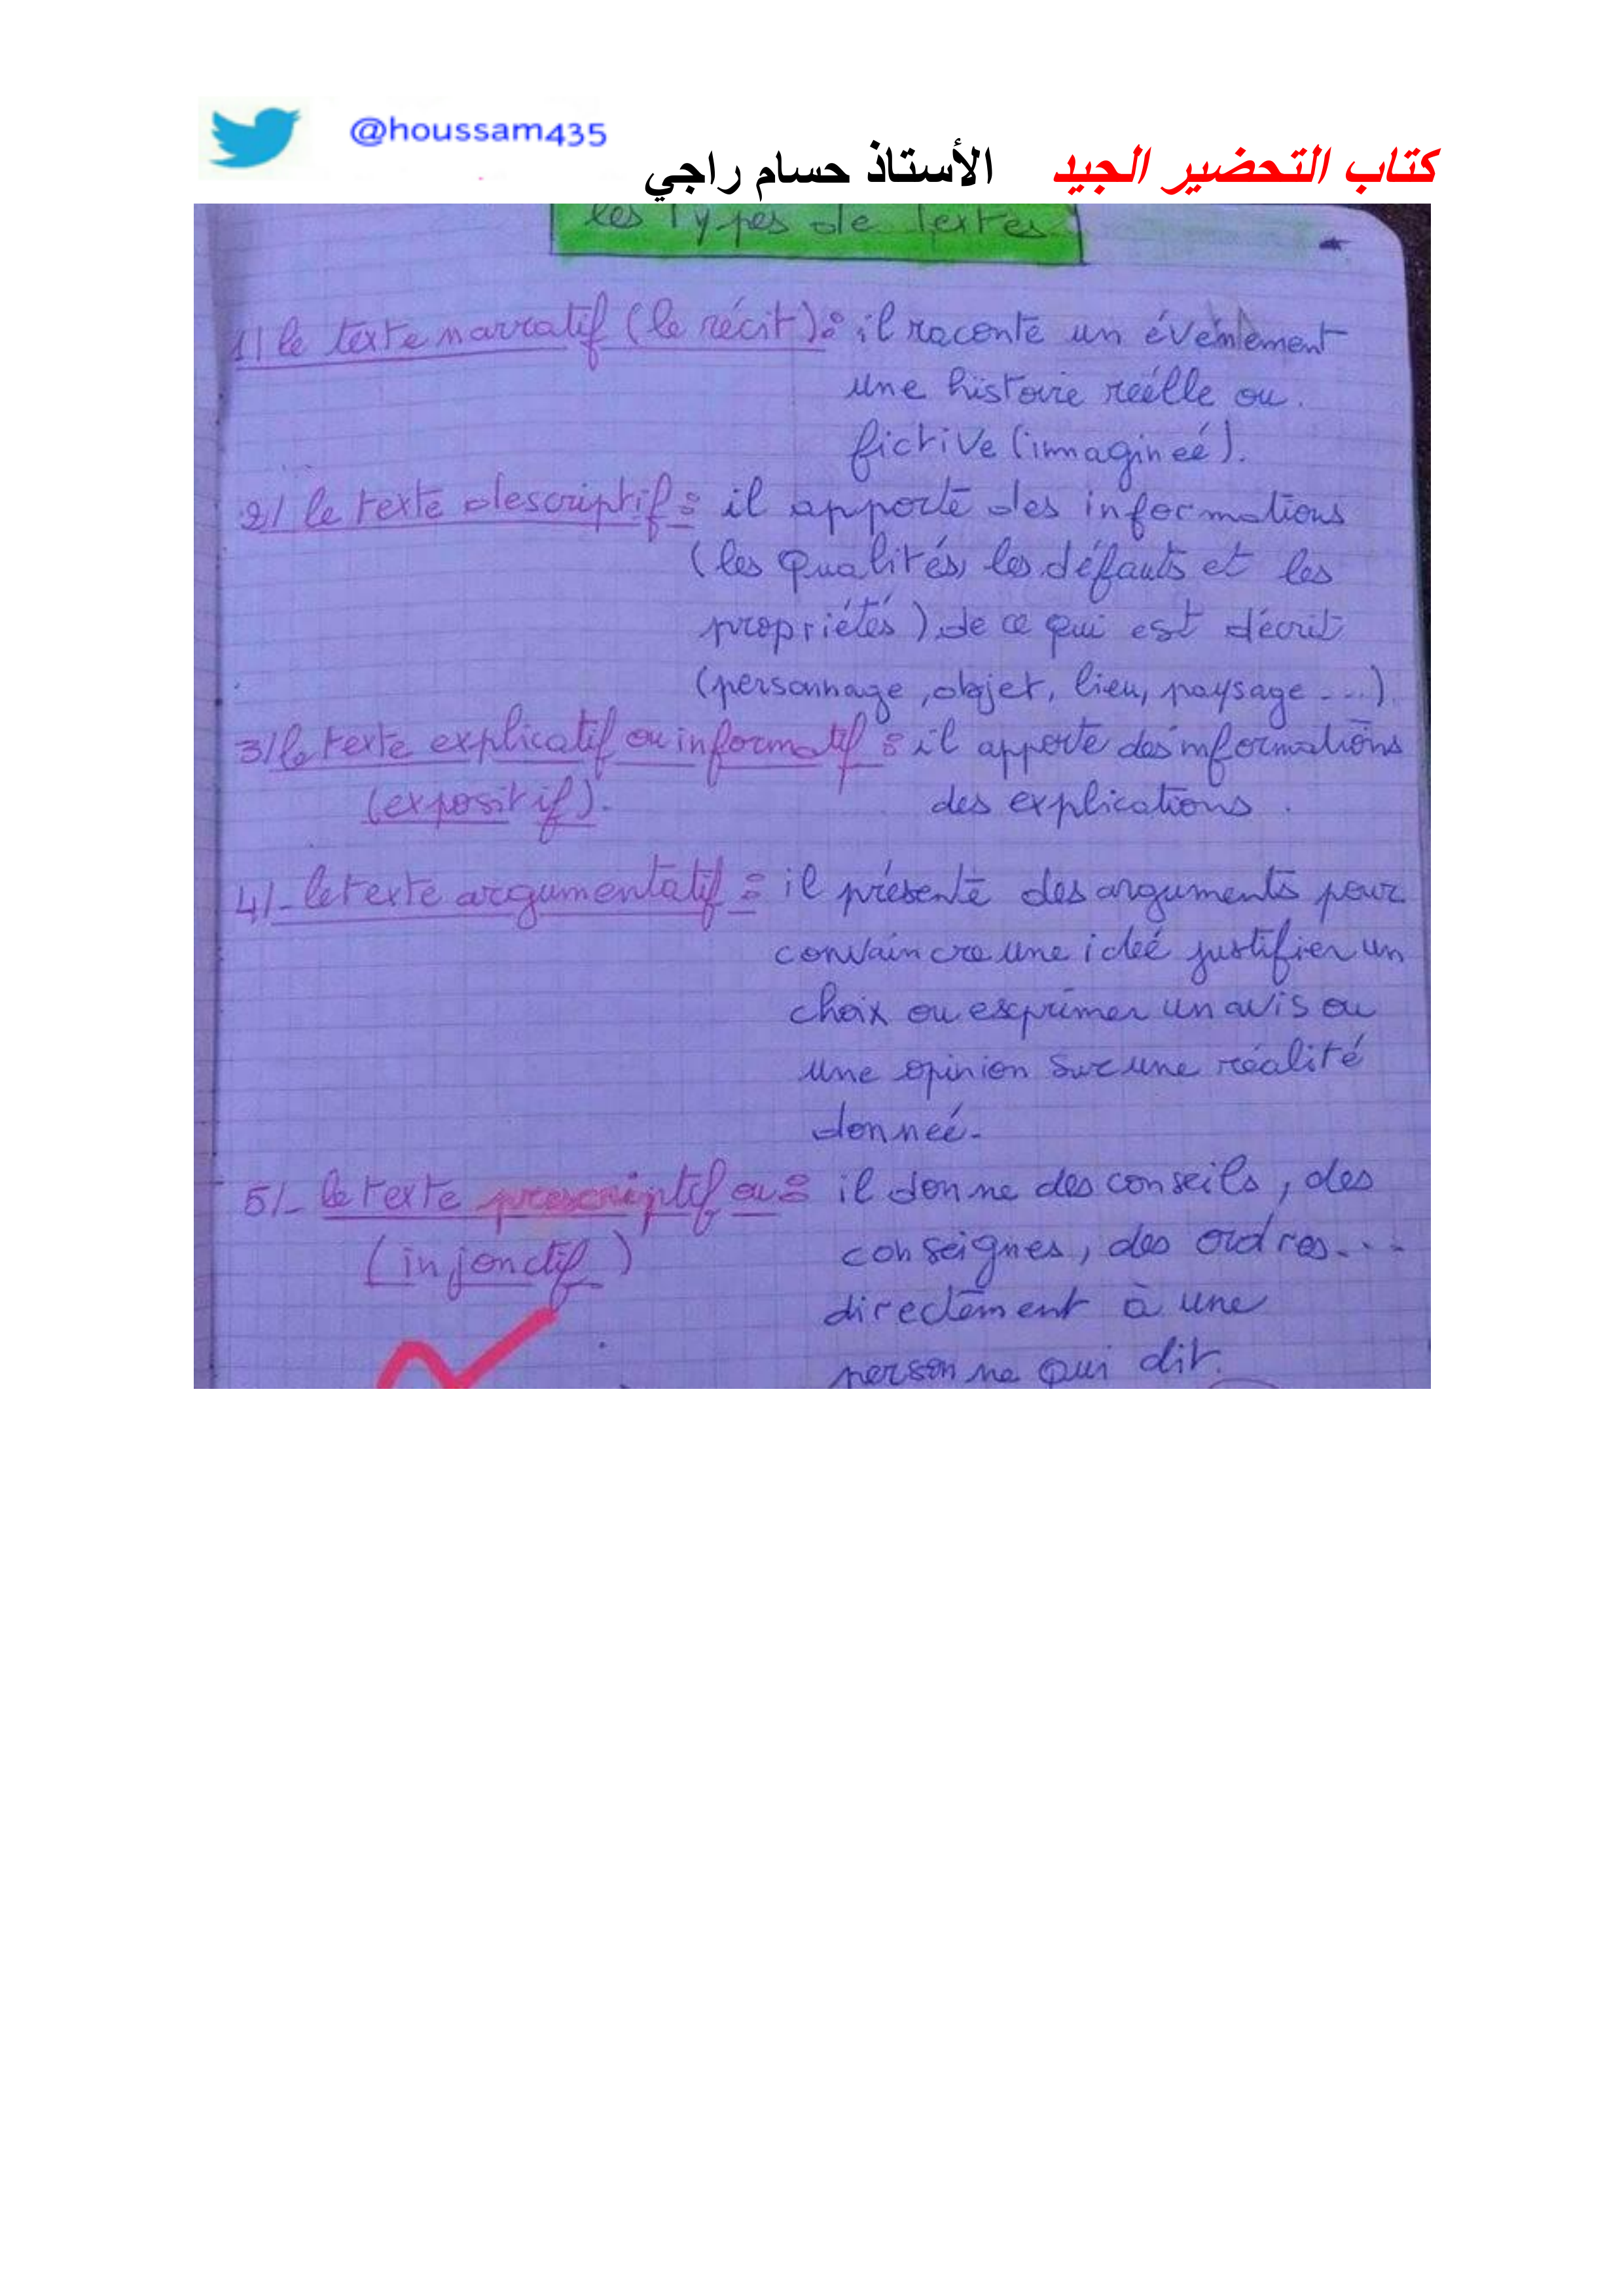 @houssam435
كتاب التحضير الجيد الأستاذ حسام راجي
les Types de Textes
1/ le texte narratif (le récit): il raconte un événement
une histoire réélle ou
fictive (immagineé).
2/ le texte descriptif: il apporte des informations
(les qualités, les défauts et les
propriétés) de ce qui est décrit
(personnage, objet, lieu, paysage ....)
3/ le texte explicatif ou informatif : il apporte des informations
(expositif). des explications .
4/- le texte argumentatif : il présente des arguments pour
convaincre une ideé justifier un
choix ou exprimer un avis ou
une opinion sur une réalité
donneé.
5/- le texte prescriptif ou : il donne des conseils, des
(injonctif) conseignes, des ordres...
directement à une
personne qui dit.